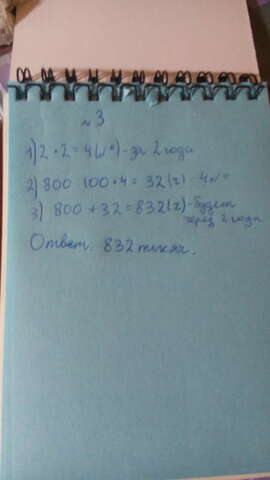 № 3
1) 2 · 2 = 4 (%) - за 2 года
2) 800 100 · 4 = 32 (т) - 4%
3) 800 + 32 = 832 (т) - будет
через 2 года
Ответ: 832 тысяч.